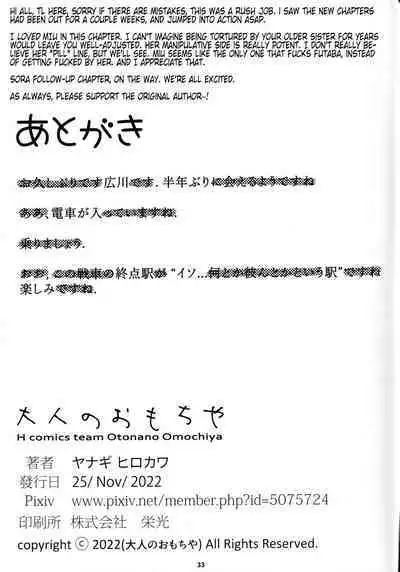 HI ALL, TL HERE, SORRY IF THERE ARE MISTAKES, THIS WAS A RUSH JOB. I SAW THE NEW CHAPTERS
HAD BEEN OUT FOR A COUPLE WEEKS, AND JUMPED INTO ACTION ASAP.
I LOVED MIU IN THIS CHAPTER. I CAN'T IMAGINE BEING TORTURED BY YOUR OLDER SISTER FOR YEARS
WOULD LEAVE YOU WELL-ADJUSTED. HER MANIPULATIVE SIDE IS REALLY POTENT. I DON'T REALLY BE-
LIEVE HER "PILL" LINE, BUT WE'LL SEE. MIU SEEMS LIKE THE ONLY ONE THAT FUCKS FUTABA, INSTEAD
OF GETTING FUCKED BY HER. AND I APPRECIATE THAT.
SORA FOLLOW-UP CHAPTER, ON THE WAY. WE'RE ALL EXCITED.
AS ALWAYS, PLEASE SUPPORT THE ORIGINAL AUTHOR~!
あとがき
お久しぶりです広川です. 半年ぶりに会えるようですね
ああ, 電車が入っていますね.
乗りましょう.
おお, この戦車の終点駅が “イソ...何とか彼んとかという駅”ですね
楽しみですね.
大人のおもちゃ
H comics team Otonano Omochiya
著者 ヤナギ ヒロカワ
発行日 25/ Nov/ 2022
Pixiv www.pixiv.net/member.php?id=5075724
印刷所 株式会社 栄光
copyright ⓒ 2022(大人のおもちや) All Rights Reserved.
33